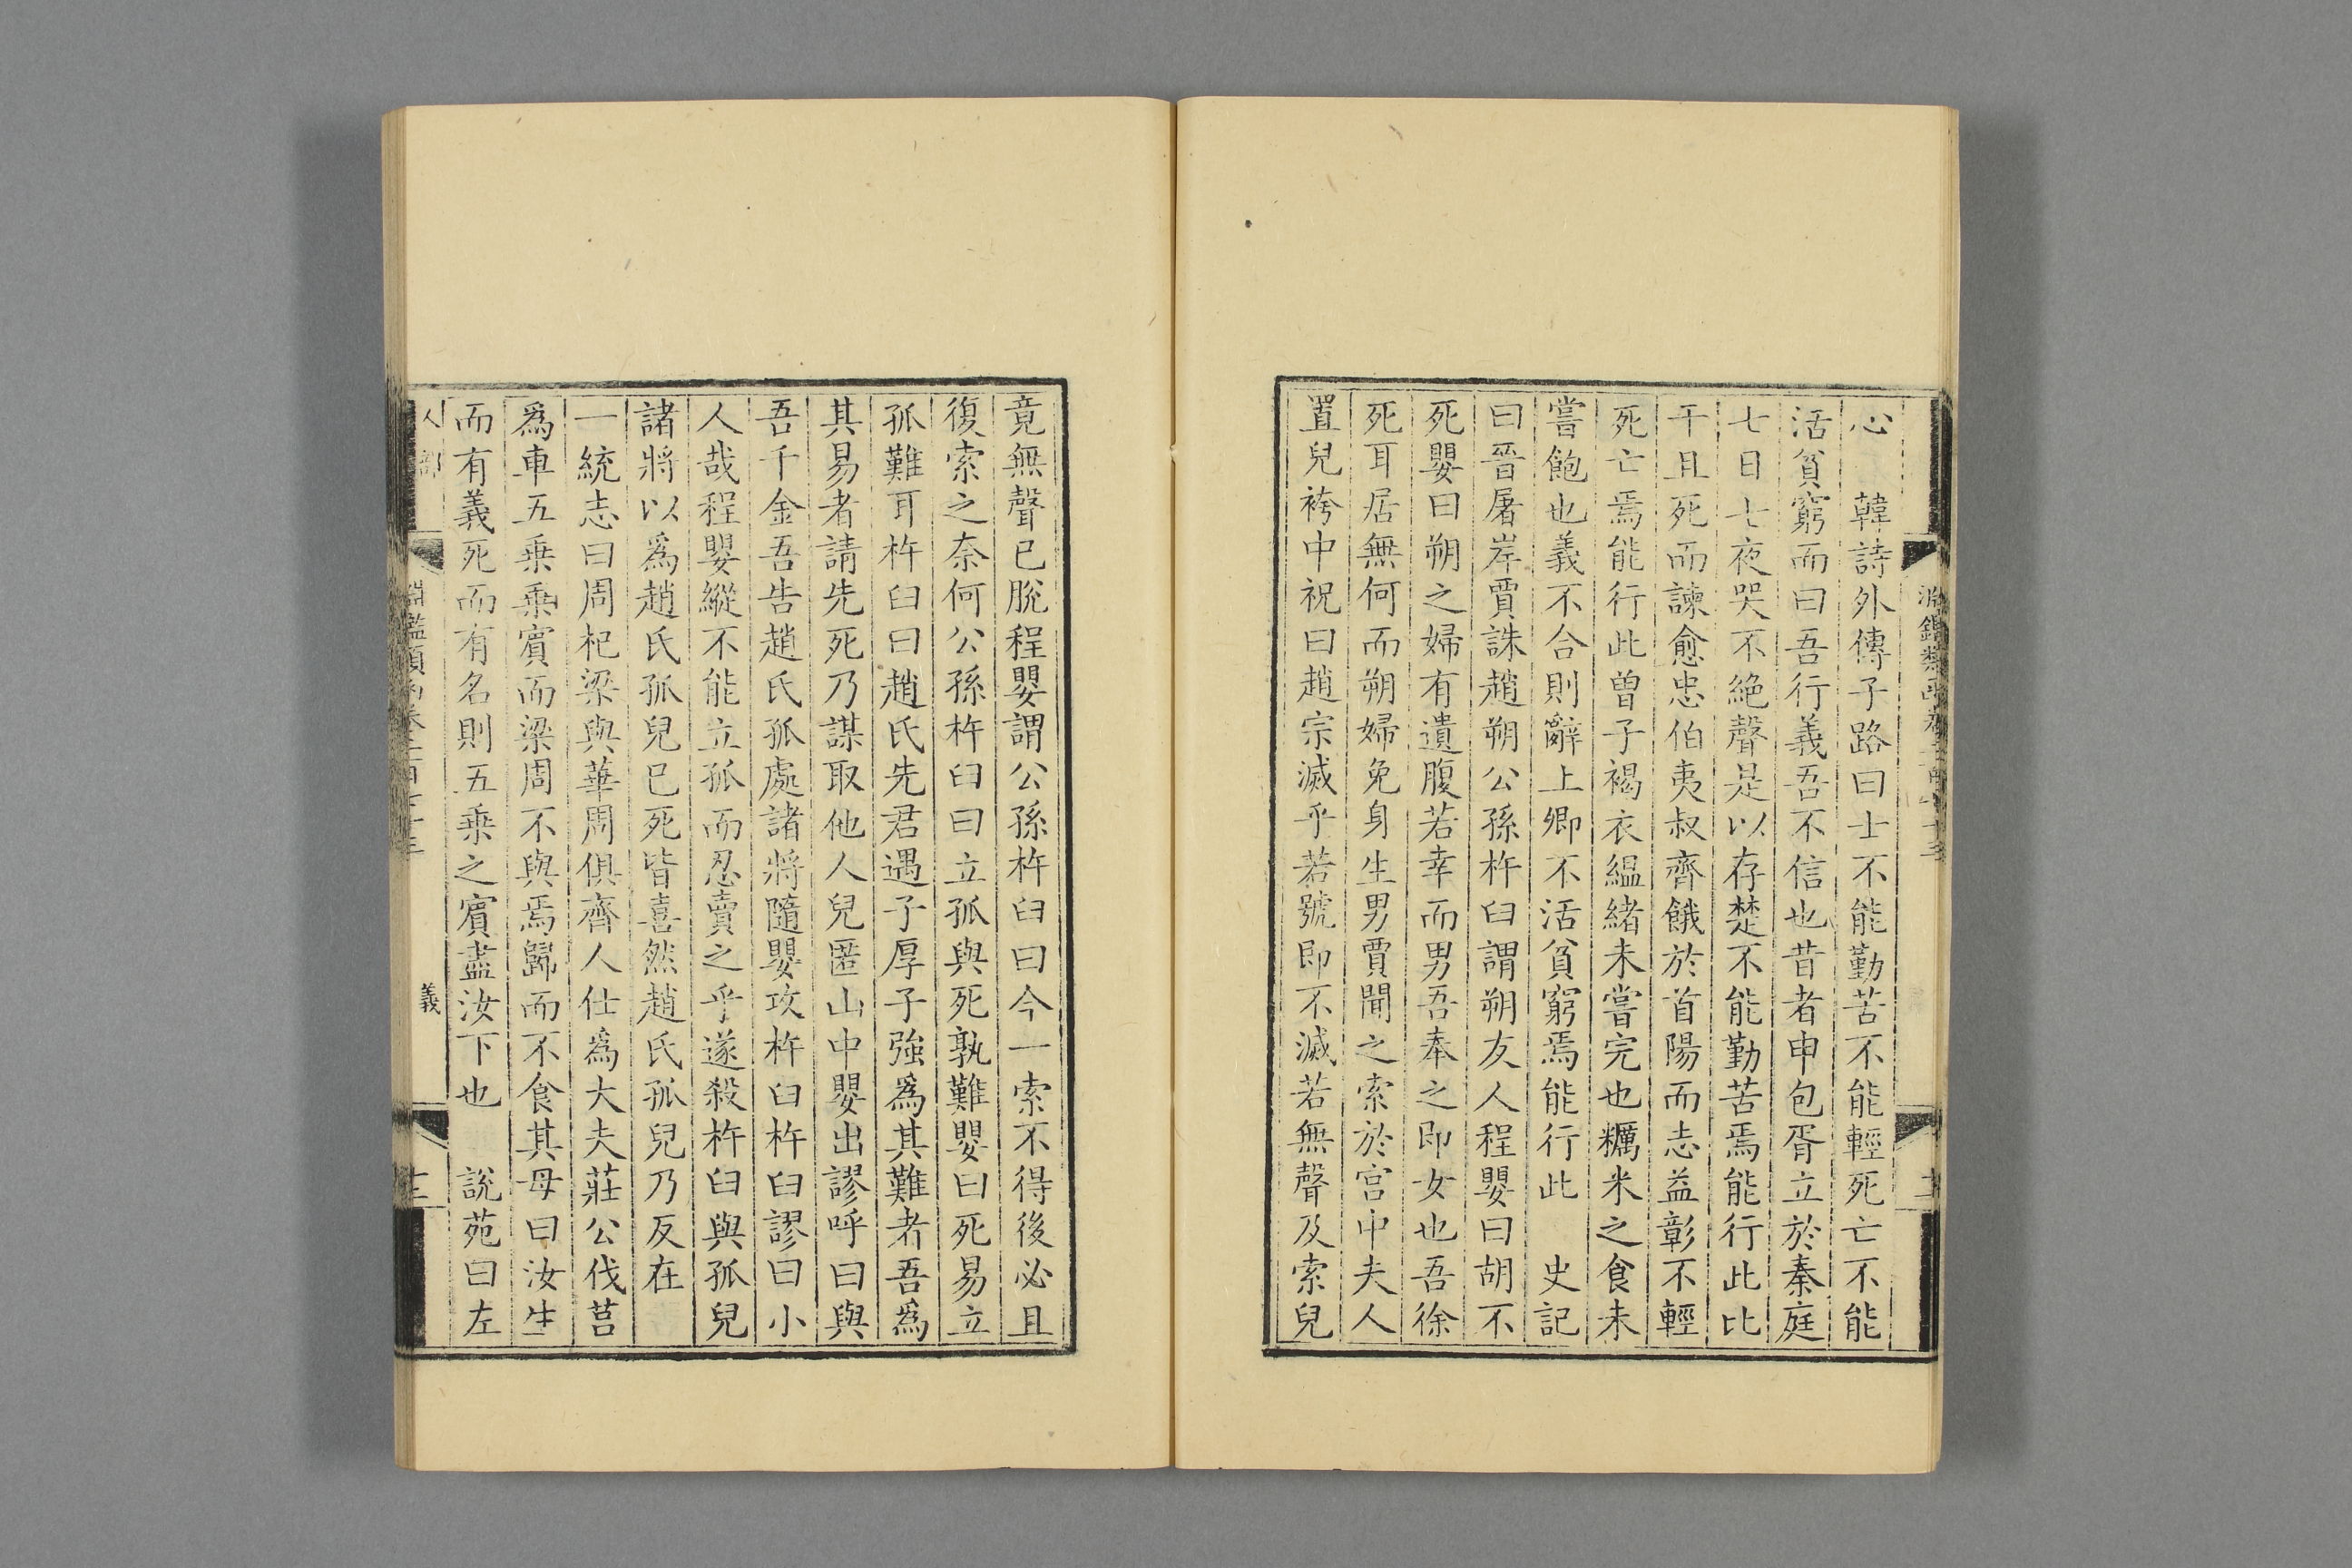 心　韓詩外傳子路曰士不能勤苦不能輕死亡不能
活貧窮而曰吾行義吾不信也昔者申包胥立於秦庭
七日七夜哭不絶聲是以存楚不能勤苦焉能行此比
干且死而諫愈忠伯夷叔齊餓於首陽而志益彰不輕
死亡焉能行此曾子褐衣縕緒未嘗完也糲米之食未
嘗飽也義不合則辭上卿不活貧窮焉能行此　史記
曰晉屠岸賈誅趙朔公孫杵臼謂朔友人程嬰曰胡不
死嬰曰朔之婦有遺腹若幸而男吾奉之即女也吾徐
死耳居無何而朔婦免身生男賈聞之索於宫中夫人
置兒袴中祝曰趙宗滅乎若號即不滅若無聲及索兒
竟無聲已脫程嬰謂公孫杵臼曰今一索不得後必且
復索之奈何公孫杵臼曰立孤與死孰難嬰曰死易立
孤難耳杵臼曰趙氏先君遇子厚子強爲其難者吾爲
其易者請先死乃謀取他人兒匿山中嬰出謬呼曰與
吾千金吾告趙氏孤處諸將隨嬰攻杵臼杵臼謬曰小
人哉程嬰縱不能立孤而忍賣之乎遂殺杵臼與孤兒
諸將以爲趙氏孤兒已死皆喜然趙氏孤兒乃反在
一統志曰周杞梁與華周俱齊人仕爲大夫莊公伐莒
爲車五乗乗賓而梁周不與焉歸而不食其母曰汝生
而有義死而有名則五乗之賓盡汝下也　說苑曰左
人部
義